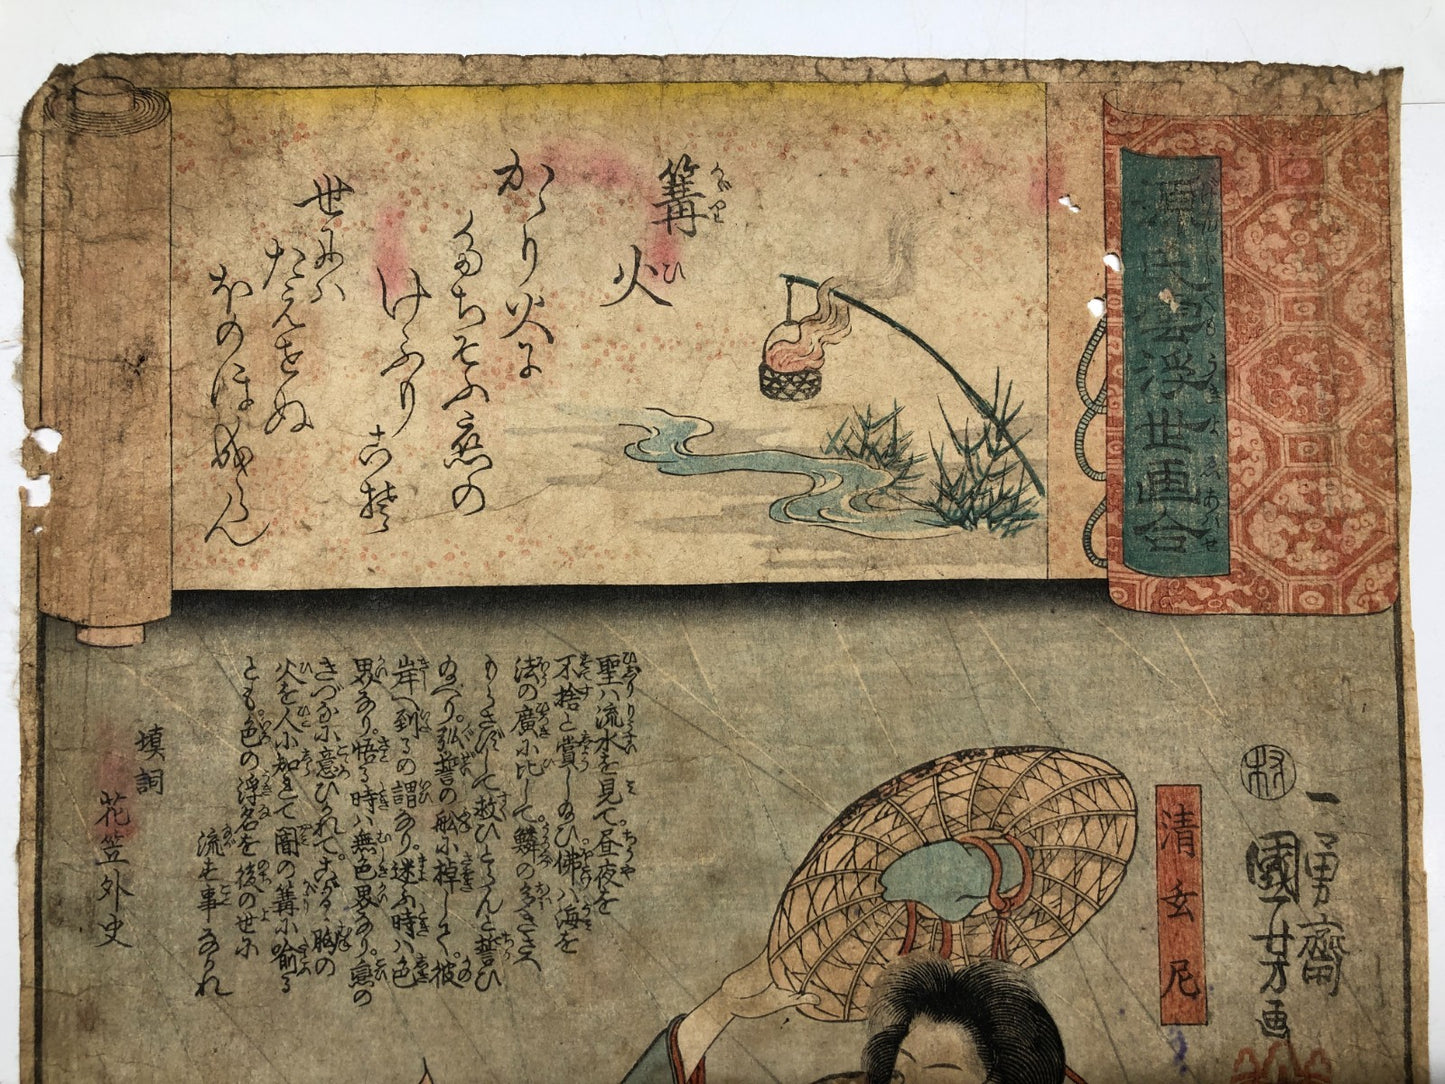 源氏雲浮世画合
げんじくもうきよゑあはせ
篝火
かゞり火に
たちそふ恋の
けふり
こそ
世にハ
たえせぬ
ほのほ
なりけれ
一勇齋
國芳画
清玄尼
聖ハ流水を見て昼夜を
不捨と賞し給ひ佛ハ海を
法の廣に比して鱗の多きさへ
もらさずして救ひとらんと誓ひ
給へり弘誓の舩に棹して彼
岸へ到るの謂あり迷ふ時ハ色
男あり悟る時ハ無色男あり恋の
きづなに意ひかれてこがるゝ胸の
火を人に知せて闇の篝に喩る
とも色の浮名を後の世に
流す事なかれ
填詞
花笠外史